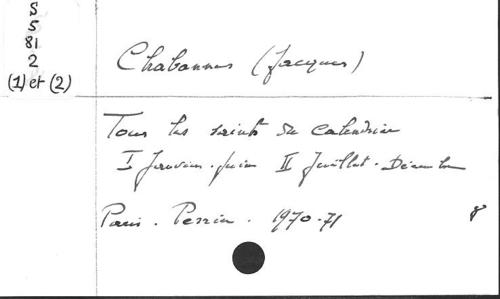 S
5
81
2
(1) et (2)
Chabannes (Jacques)
Tous les saints du calendrier
I Janvier-Juin II Juillet-Décembre
Paris. Perrin. 1970-71